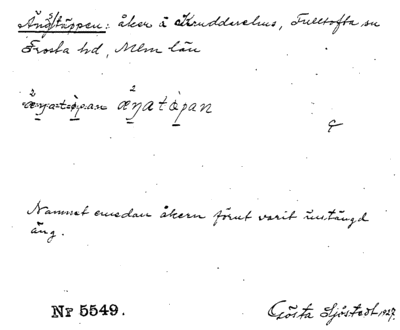 Ängstäppen: åker å Kruddarehus, Fulltofta sn
Frosta hd, Mlm län
æŋatòpan
Namnet emedan åkern förut varit instängd
äng.
Nr 5549.
Gösta Sjöstedt, 1927.